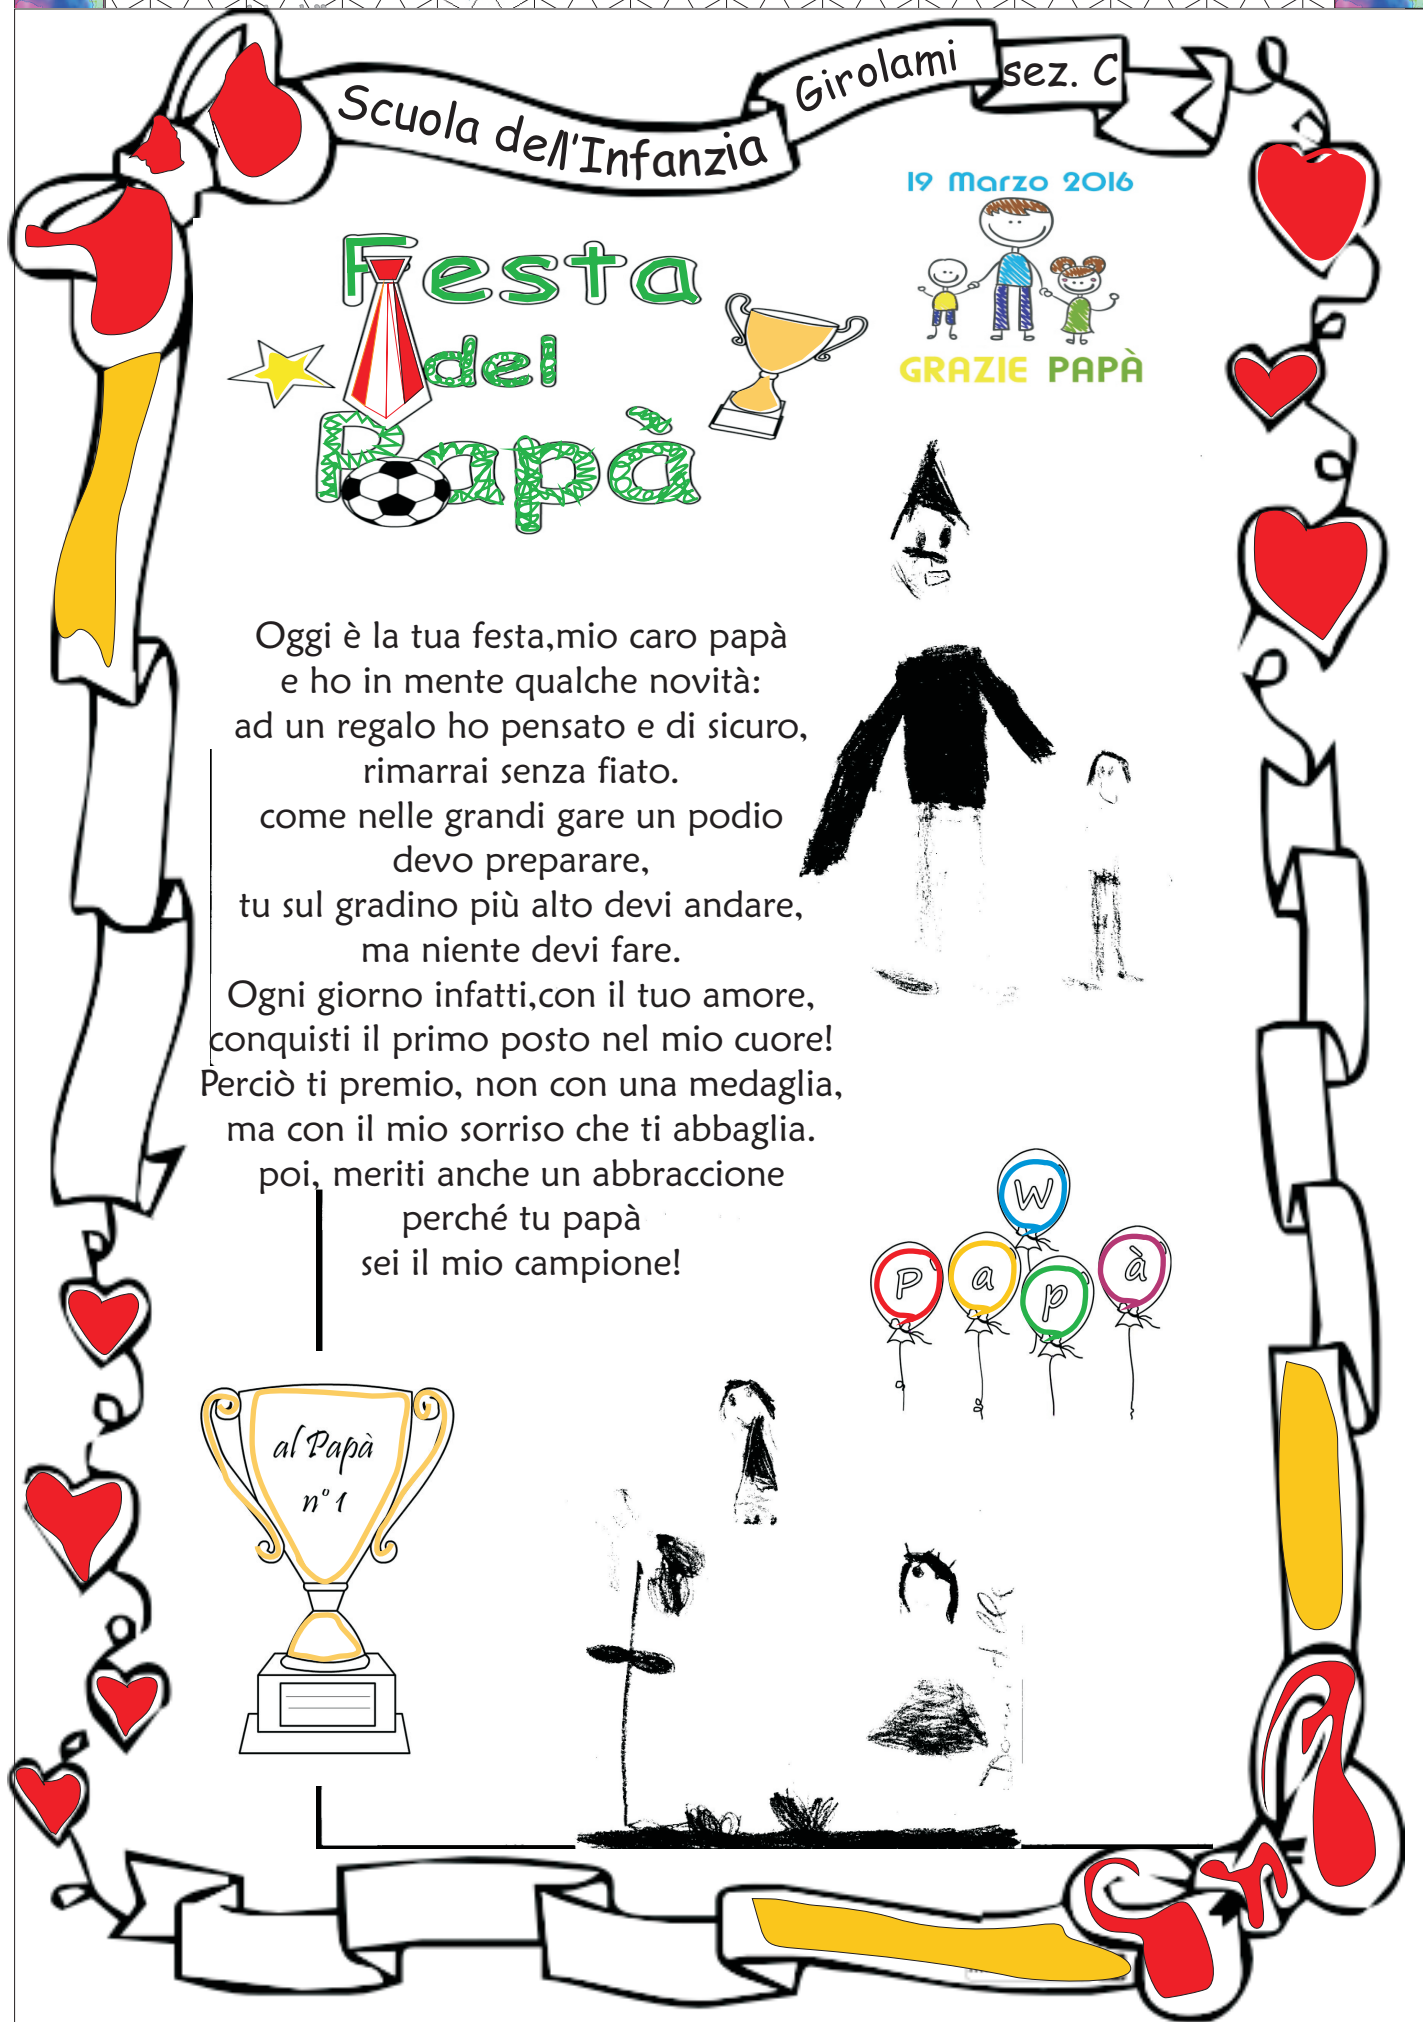 Scuola dell'Infanzia Girolami sez. C
19 Marzo 2016
GRAZIE PAPÀ
Festa
del
Papà
Oggi è la tua festa,mio caro papà
e ho in mente qualche novità:
ad un regalo ho pensato e di sicuro,
rimarrai senza fiato.
come nelle grandi gare un podio
devo preparare,
tu sul gradino più alto devi andare,
ma niente devi fare.
Ogni giorno infatti,con il tuo amore,
conquisti il primo posto nel mio cuore!
Perciò ti premio, non con una medaglia,
ma con il mio sorriso che ti abbaglia.
poi, meriti anche un abbraccione
perché tu papà
sei il mio campione!
W
Papà
al Papà
n° 1